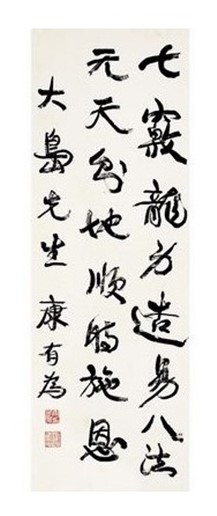 七竅龍方造易八法
元天地順時施恩
大島先生 康有為